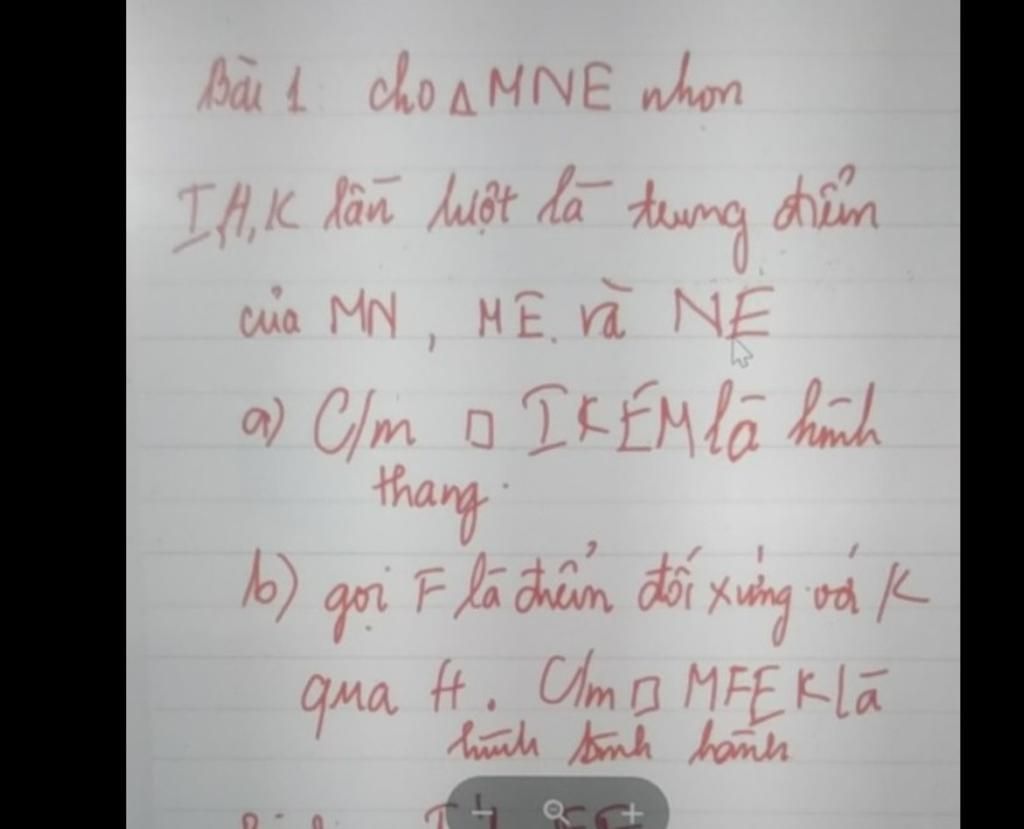 Bài 1: cho △MNE nhọn
I,H,K lần lượt là trung điểm
của MN, ME và NE
a) C/m □ IKEM là hình
thang.
b) gọi F là điểm đối xứng với K
qua H. C/m □ MFEK là
hình bình hành